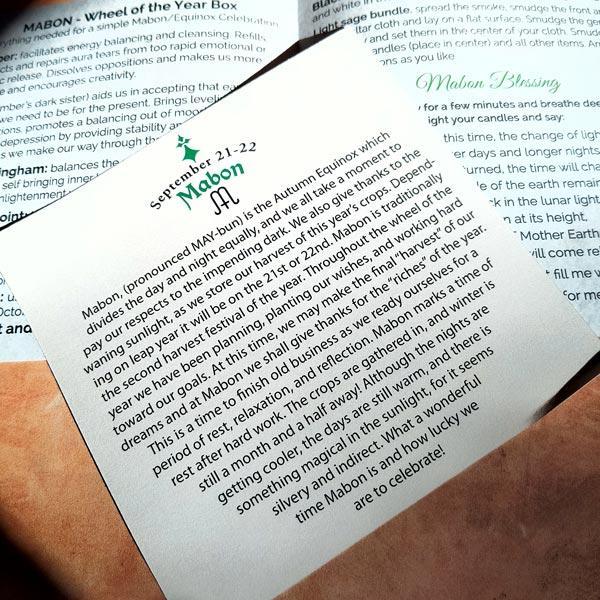 MABON - Wheel of the Year Box
needed for a simple Mabon/Equinox Celebration
facilitates energy balancing and cleansing. Refills
and repairs aura tears from too rapid emotional or
release. Dissolves oppositions and makes us more
and encourages creativity.
dark sister) aids us in accepting that
we need to be for the present. Brings
promotes a balancing out of
depression by providing stability
as we make our way through
balances the
self bringing inner
Light sage bundle. spread the smoke, smudge the front
cloth and lay on a flat surface. Smudge the
and set them in the center of your cloth. Smudge
(place in center) and all other items.
as you like
Mabon Blessing
for a few minutes and breathe
light your candles and say:
this time, the change of
days and longer nights
turned, the time will
of the earth remain
in the lunar light
at its height,
Mother Earth
will come
fill me
for me
September 21-22
Mabon
Mabon, (pronounced MAY-bun) is the Autumn Equinox which
divides the day and night equally, and we all take a moment to
pay our respects to the impending dark. We also give thanks to the
waning sunlight, as we store our harvest of this year's crops. Depend-
ing on leap year it will be on the 21st or 22nd. Mabon is traditionally
the second harvest festival of the year. Throughout the wheel of the
year we have been planning, planting our wishes, and working hard
toward our goals. At this time, we may make the final "harvest" of our
dreams and at Mabon we shall give thanks for the "riches" of the year.
This is a time to finish old business as we ready ourselves for a
period of rest, relaxation, and reflection. Mabon marks a time of
rest after hard work. The crops are gathered in, and winter is
still a month and a half away! Although the nights are
getting cooler, the days are still warm, and there is
something magical in the sunlight, for it seems
silvery and indirect. What a wonderful
time Mabon is and how lucky we
are to celebrate!